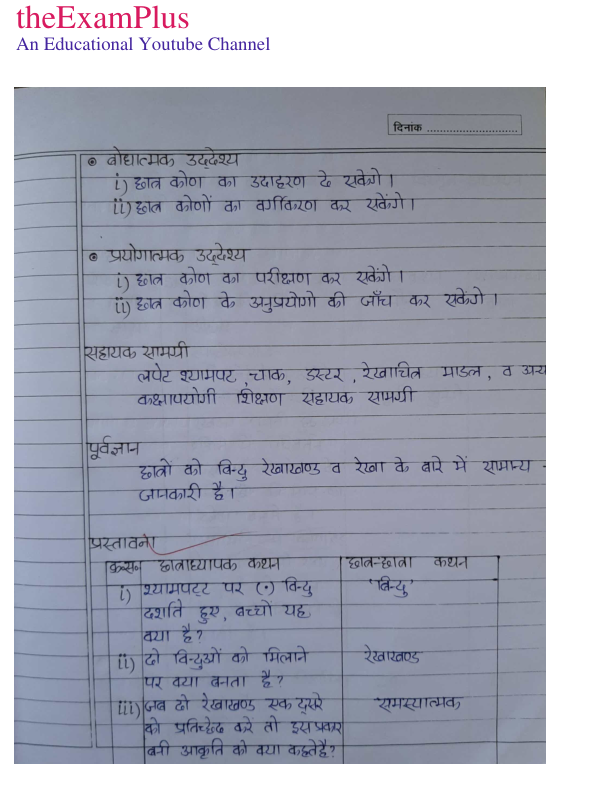 theExamPlus
An Educational Youtube Channel
दिनांक ............................
बोधात्मक उद्देश्य
i) छात्र कोण का उदाहरण दे सकेंगे।
ii) छात्र कोणों का वर्गीकरण कर सकेंगे।
प्रयोगात्मक उद्देश्य
i) छात्र कोण का परीक्षण कर सकेंगे।
ii) छात्र कोण के अनुप्रयोगो की जाँच कर सकेंगे।
सहायक सामग्री
लपेट श्यामपट, चाक, डस्टर, रेखाचित्र माडल, व
कक्षापयोगी शिक्षण सहायक सामग्री
पूर्वज्ञान
छात्रों को बिन्दु रेखाखण्ड व रेखा के बारे में सामान्य
जानकारी है।
प्रस्तावना
छात्राध्यापक कथन छात्र-छात्रा कथन
i) श्यामपट्ट पर (•) बिन्दु 'बिन्दु'
दर्शाते हुए, बच्चों यह
क्या है?
ii) दो बिन्दुओं को मिलाने रेखाखण्ड
पर क्या बनता है?
iii) जब दो रेखाखण्ड एक दूसरे समस्यात्मक
को प्रतिच्छेद करें तो इस प्रकार
बनी आकृति को क्या कहते है?